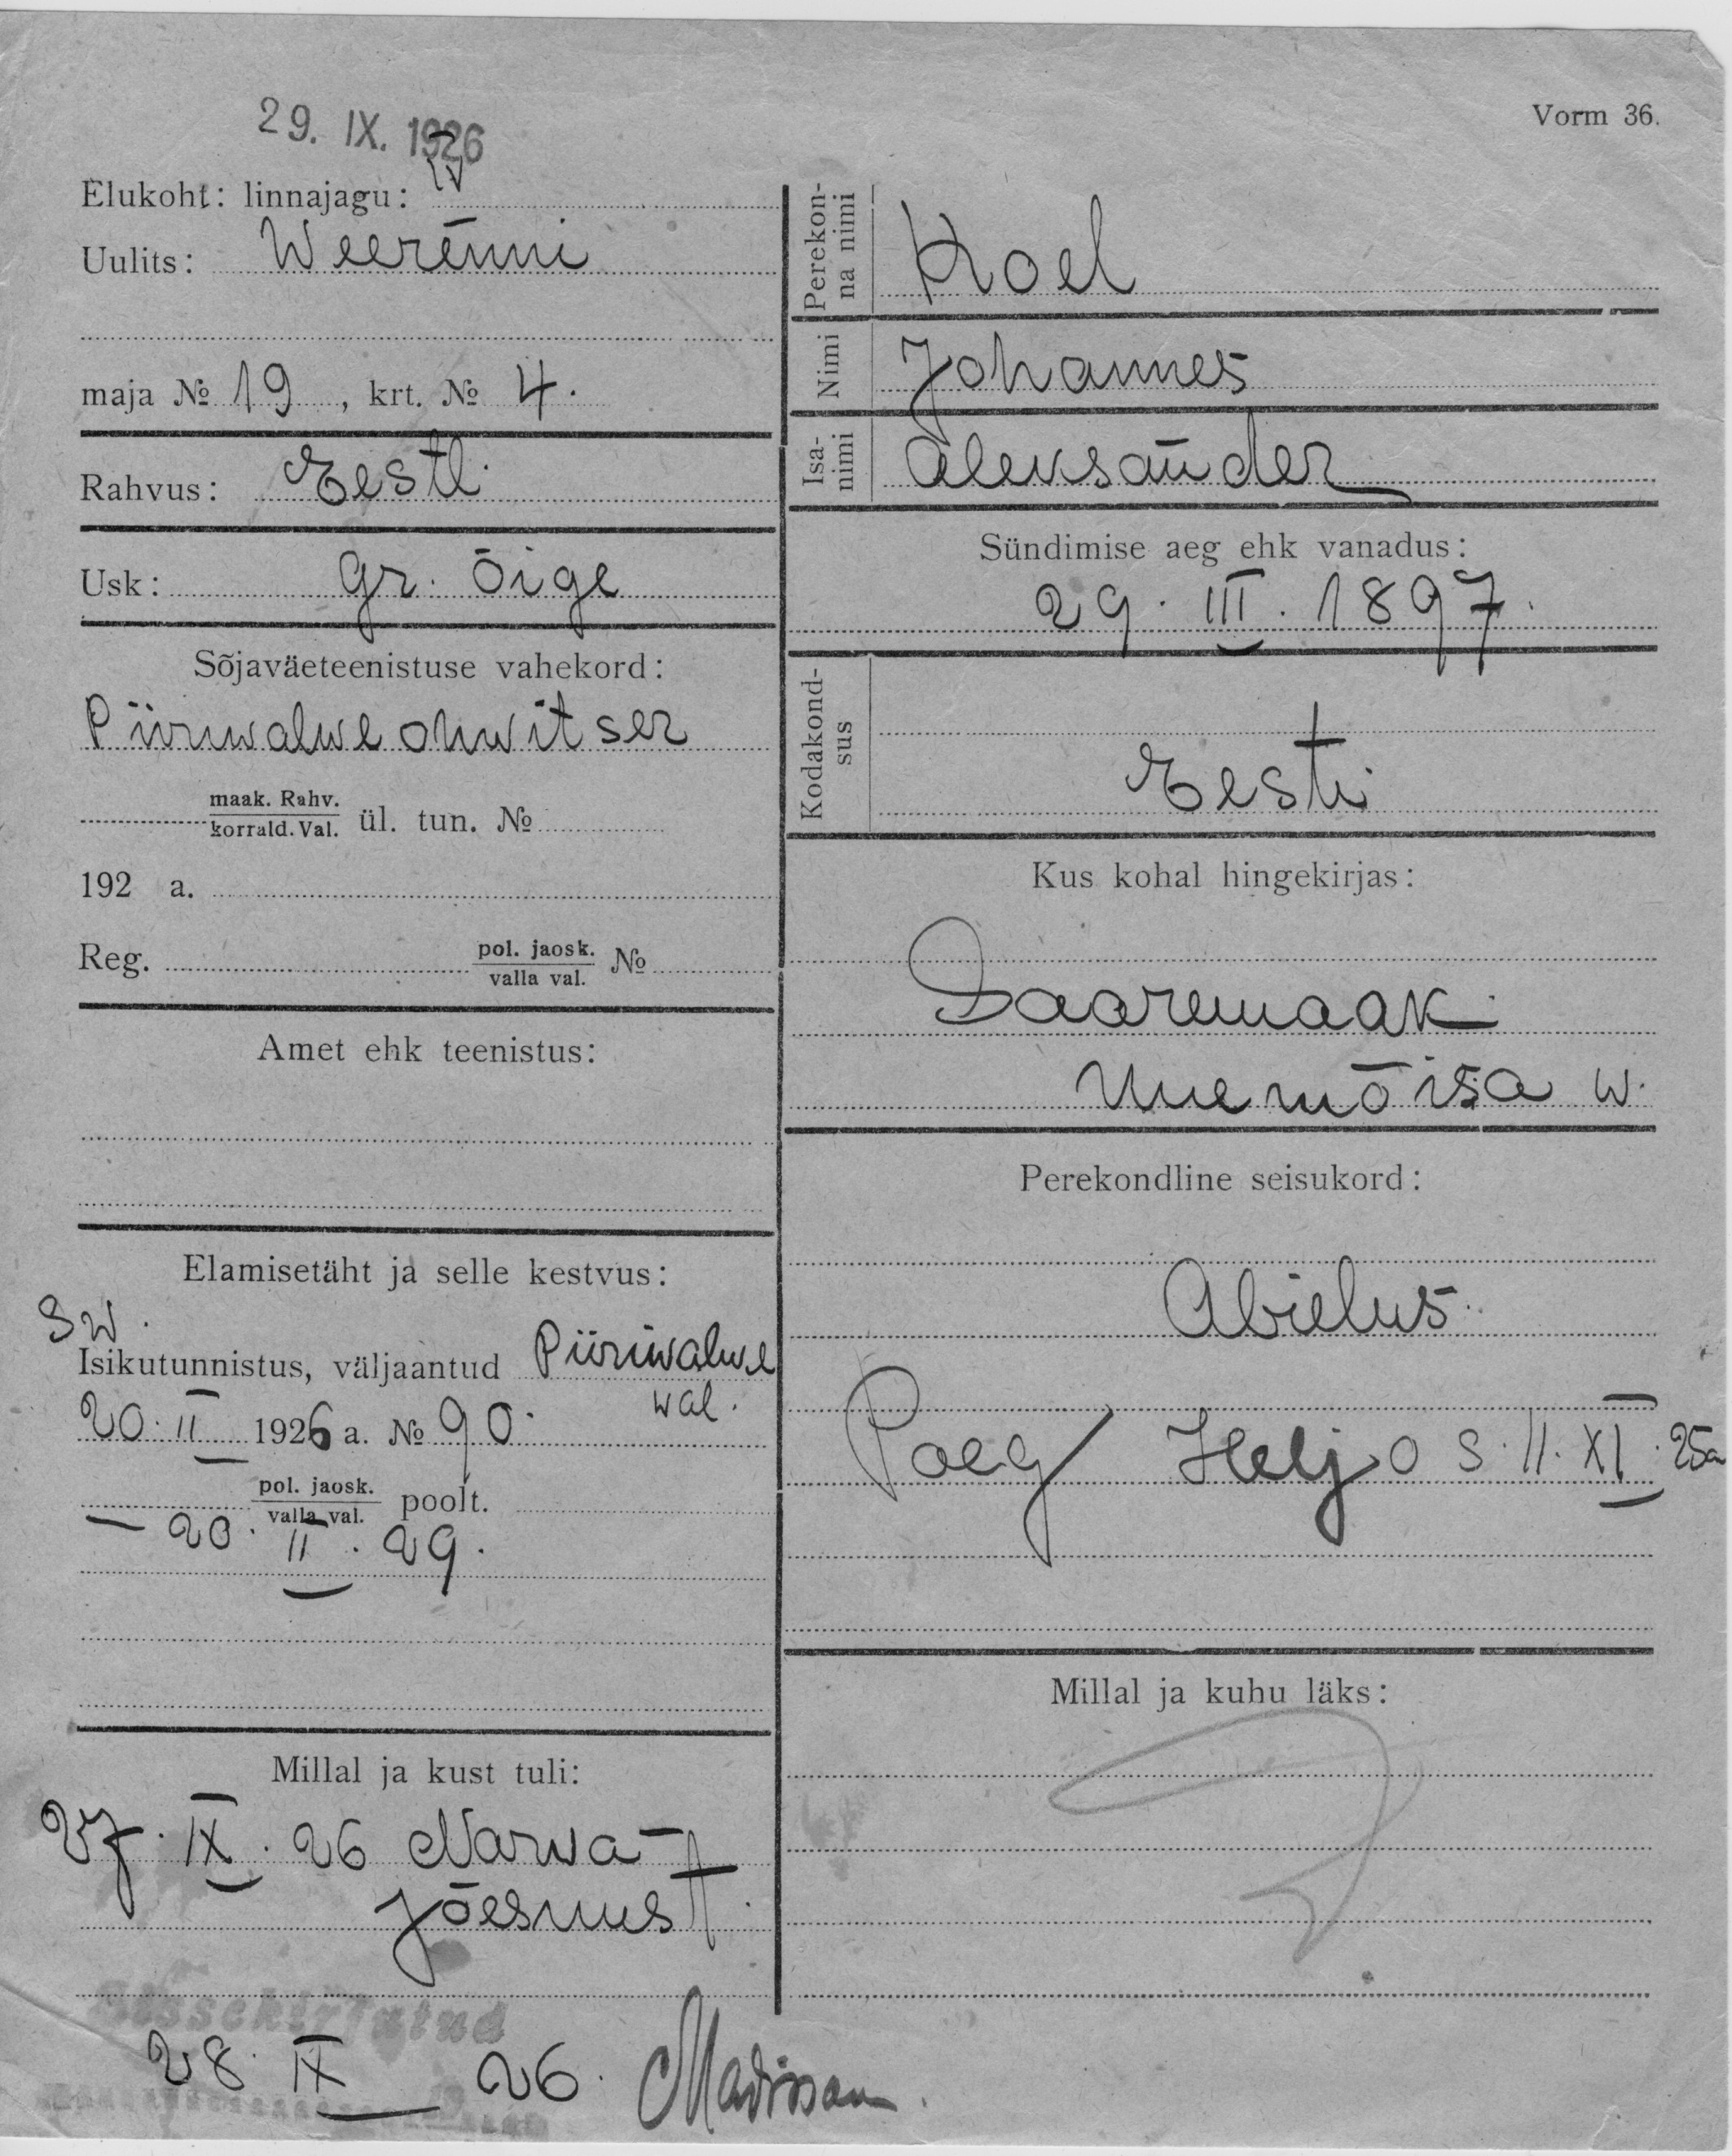 29. IX. 1926
Vorm 36.
Elukoht: linnajagu: IV
Uulits: Weerenni
maja № 19, krt. № 4.
Rahvus: Eesti
Usk: Gr. õige
Sõjaväeteenistuse vahekord:
Piiriwalwe ohwitser
maak. Rahv.
korrald. Val. ül. tun. №
192 a.
Reg. pol. jaosk.
valla val. №
Amet ehk teenistus:
Elamisetäht ja selle kestvus:
Sw.
Isikutunnistus, väljaantud Piiriwalwe
wal.
20. II 1926 a. № 90.
pol. jaosk.
valla val. poolt.
— 20. II. 29.
Millal ja kust tuli:
27. IX. 26 Narwa-
Jõesuust.
Sissekirjutud
28. IX 26. Madisson.
Perekon-
na nimi Koel
Nimi Johannes
Isa-
nimi Aleksander
Sündimise aeg ehk vanadus:
29. III. 1897.
Kodakond-
sus Eesti
Kus kohal hingekirjas:
Saaremaa k.
Uuemõisa w.
Perekondline seisukord:
Abielus.
Poeg Heljo s. 11. XI. 25a
Millal ja kuhu läks: